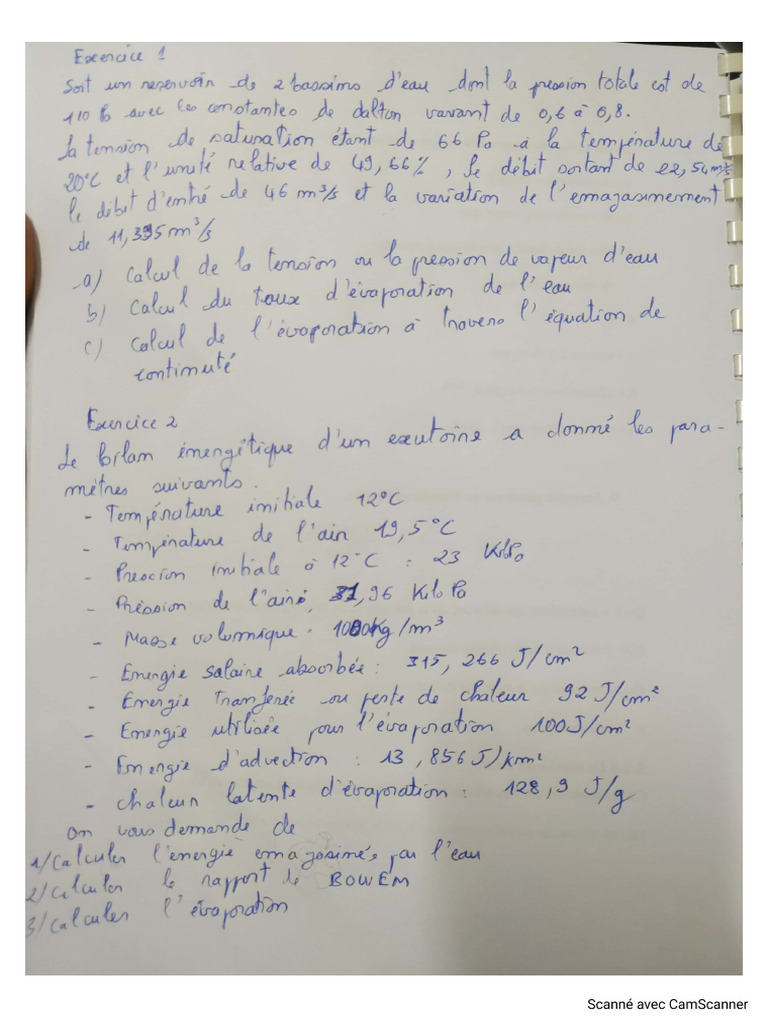 Exercice 1
Soit un reservoir de 2 bassins d'eau dont la pression totale est de
110 Pa avec les constantes de dalton variant de 0,6 à 0,8.
la tension de saturation étant de 66 Pa à la température de
20°C et l'unité relative de 49,66%, le débit sortant de 22,54 m³/s
le débit d'entré de 46 m³/s et la variation de l'emagasinement
de 11,395 m³/s
a) Calcul de la tension ou la pression de vapeur d'eau
b) Calcul du taux d'évaporation de l'eau
c) Calcul de l'évaporation à travers l'équation de
continuité
Exercice 2
Le bilan énergétique d'un exutoire a donné les para-
mètres suivants.
- Température initiale 12°C
- Température de l'air 19,5°C
- Pression initiale à 12°C : 23 KiloPa
- Préssion de l'air: 31,96 Kilo Pa
- Masse volumique. 1000Kg/m³
- Energie solaire absorbée : 315,266 J/cm²
- Energie transferée ou perte de chaleur 92 J/cm²
- Energie utilisée pour l'évaporation 100J/cm²
- Energie d'advection : 13,856 J/km²
- chaleur latente d'évaporation : 128,9 J/g
on vous demande de
1/Calculer l'energie emagasinée par l'eau
2/Calculer le rapport de BOWEN
3/Calculer l'évaporation
Scanné avec CamScanner